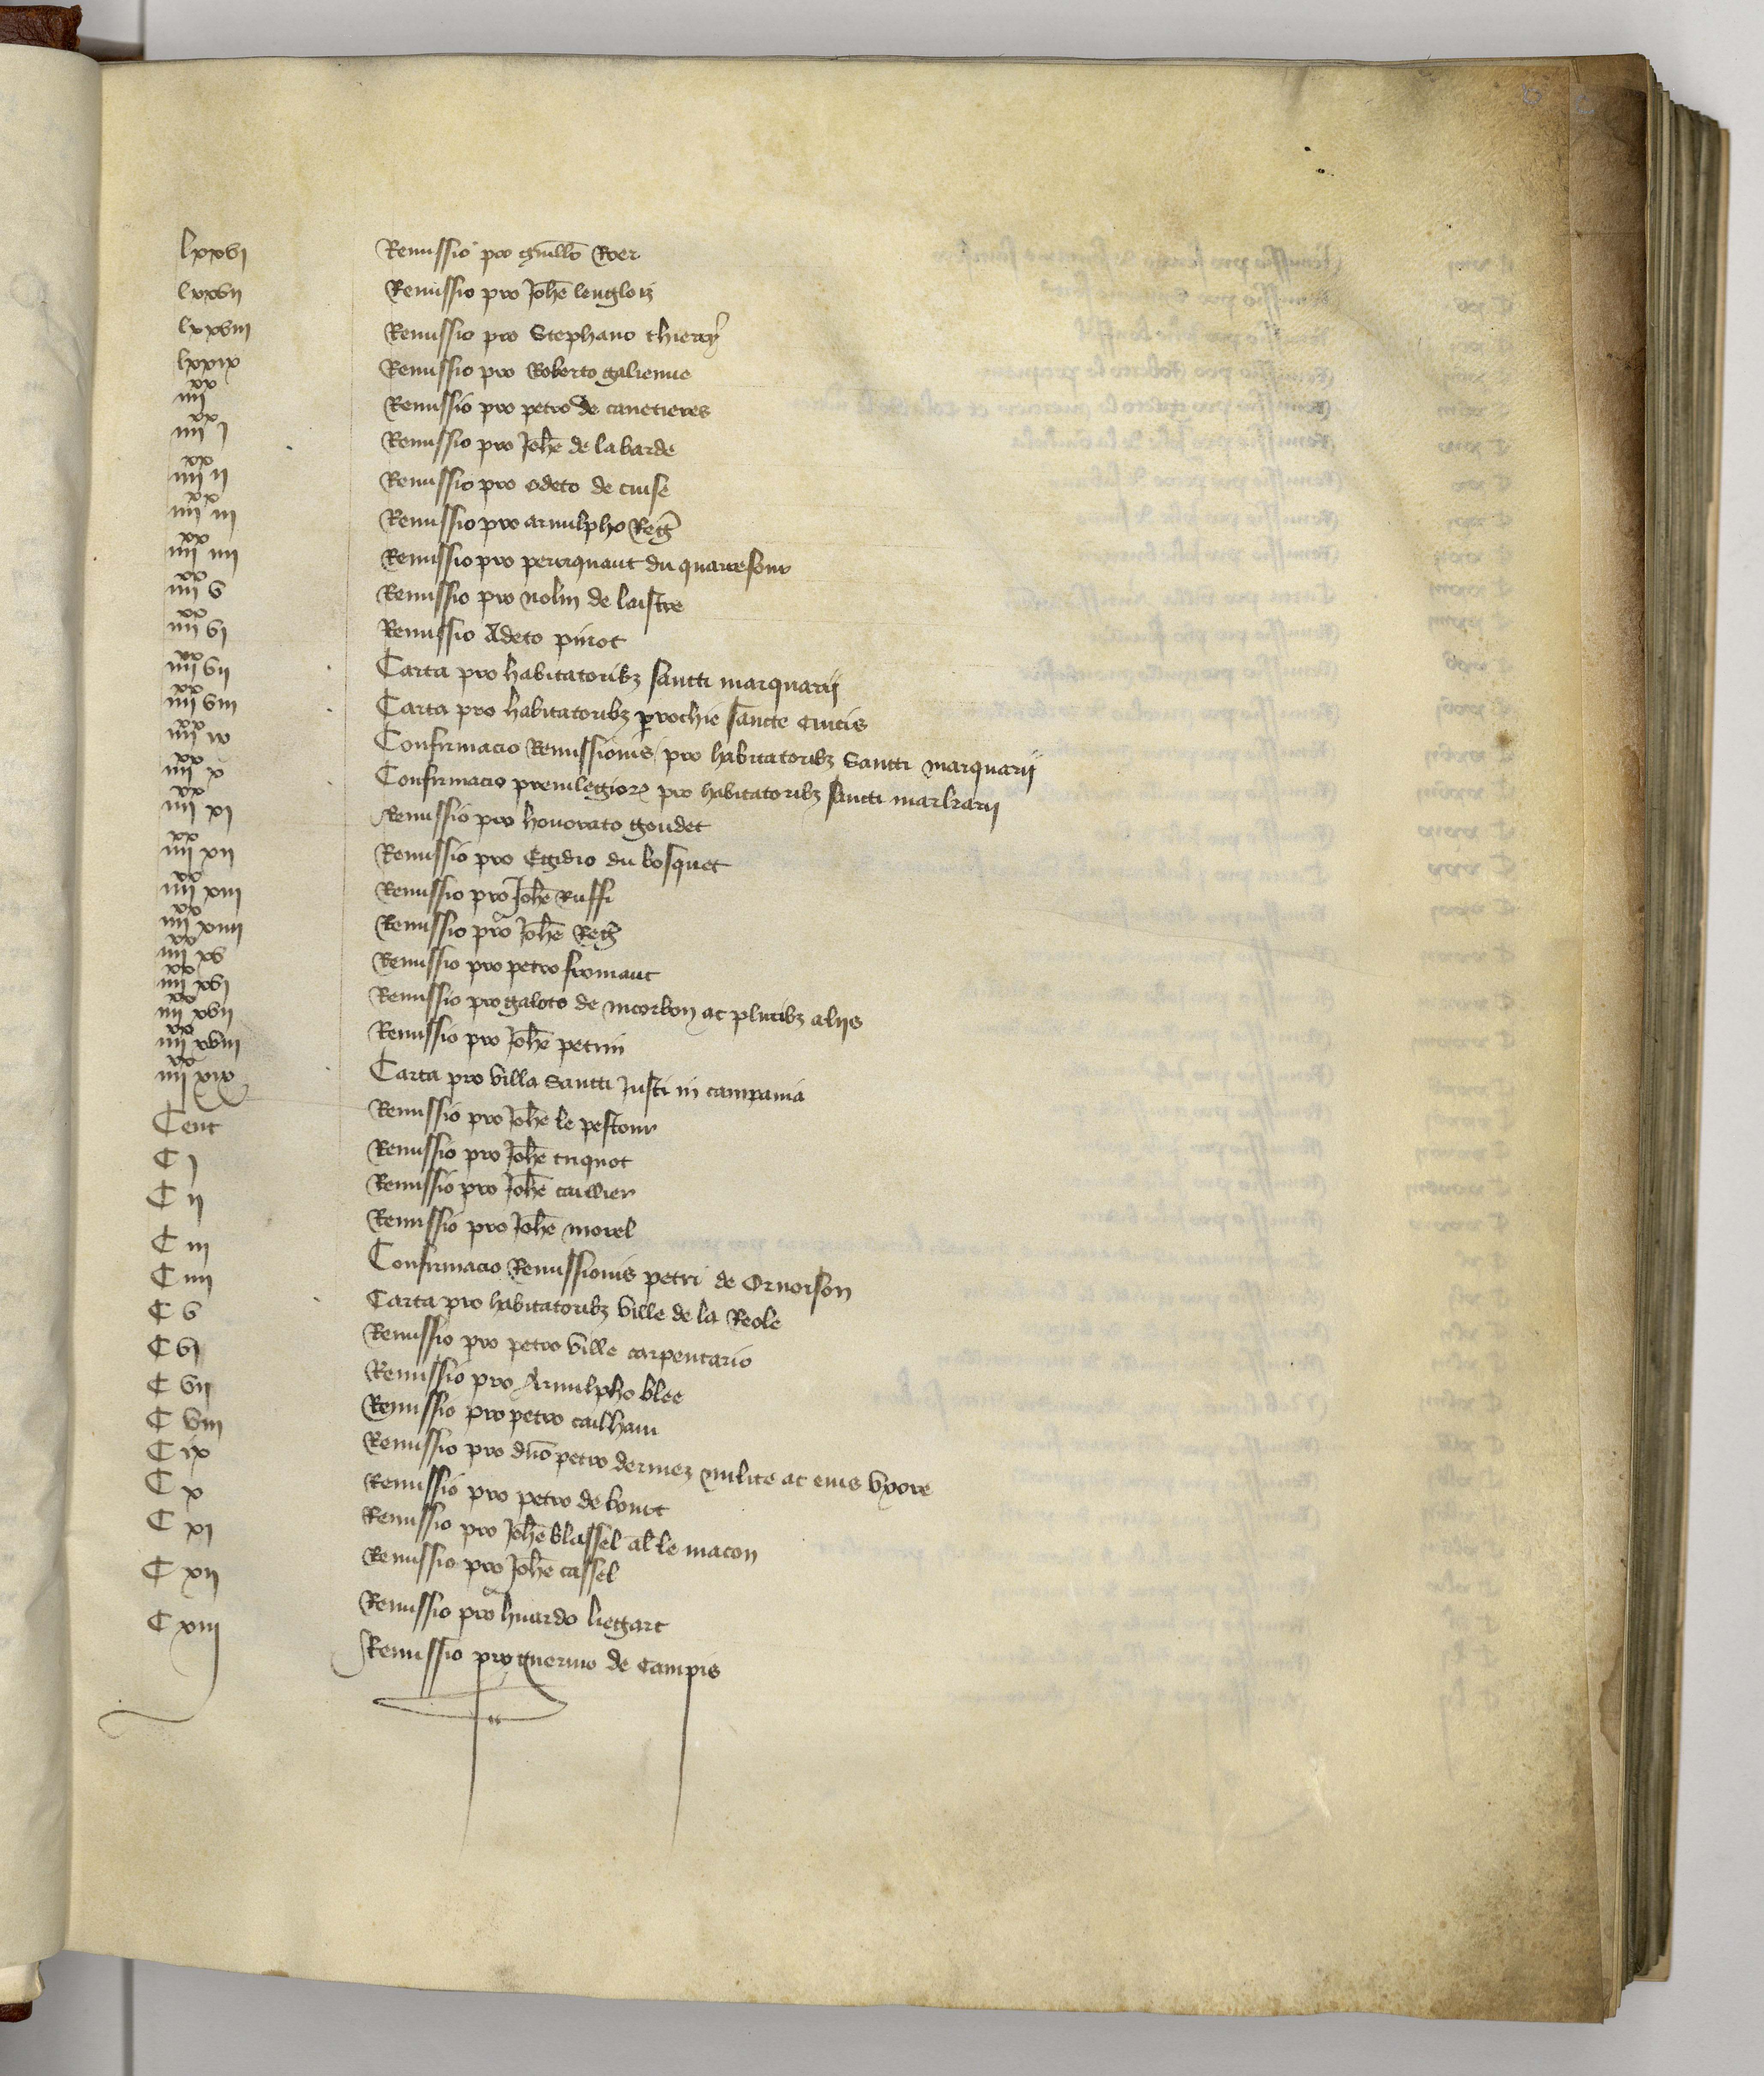 lxxvi Remissio pro guillo Roer
lxxvii Remissio pro Johe lengloiz
lxxviii Remissio pro Stephano thierry
lxxix Remissio pro Roberto galienne
iiii xx Remissio pro petro de canetieres
iiii xx i Remissio pro Johe de labarde
iiii xx ii Remissio pro odeto de cuise
iiii xx iii Remissio pro arnulpho Reg
iiii xx iiii Remissio pro perrquaut du quarrefour
iiii xx v Remissio pro nolin de laistre
iiii xx vi Remissio Adeto pinot
iiii xx vii Carta pro habitatoribz sancti marquarii
iiii xx viii Carta pro habitatoribz prochie sancte crucis
iiii xx ix Confirmacio Remissionis pro habitatoribz Sancti marquarii
iiii xx x Confirmacio previlegiorum pro habitatoribz sancti markarii
iiii xx xi Remissio pro honorato goudet
iiii xx xii Remissio pro Egidio du bosquet
iiii xx xiii Remissio pro Johe Ruffi
iiii xx xiiii Remissio pro Johe Reg
iiii xx xv Remissio pro petro fromaut
iiii xx xvi Remissio pro galoto de mcorbon ac pluribz aliis
iiii xx xvii Remissio pro Johe petrin
iiii xx xviii Carta pro villa Sancti Justi in campania
iiii xx xix Remissio pro Johe le pestour
Cent Remissio pro Johe triquot
C i Remissio pro Johe caillier
C ii Remissio pro Johe morel
C iii Confirmacio Remissionis petri de Ornoison
C iiii Carta pro habitatoribz ville de la Reole
C v Remissio pro petro ville carpentario
C vi Remissio pro Arnulpho blee
C vii Remissio pro petro cailhau
C viii Remissio pro dno petro dermez milite ac eius uxore
C ix Remissio pro petro de bonot
C x Remissio pro Johe blassel al le macon
C xi Remissio pro Johe cassel
C xii Remissio pro huardo liegart
C xiii Remissio pro guermo de Campis